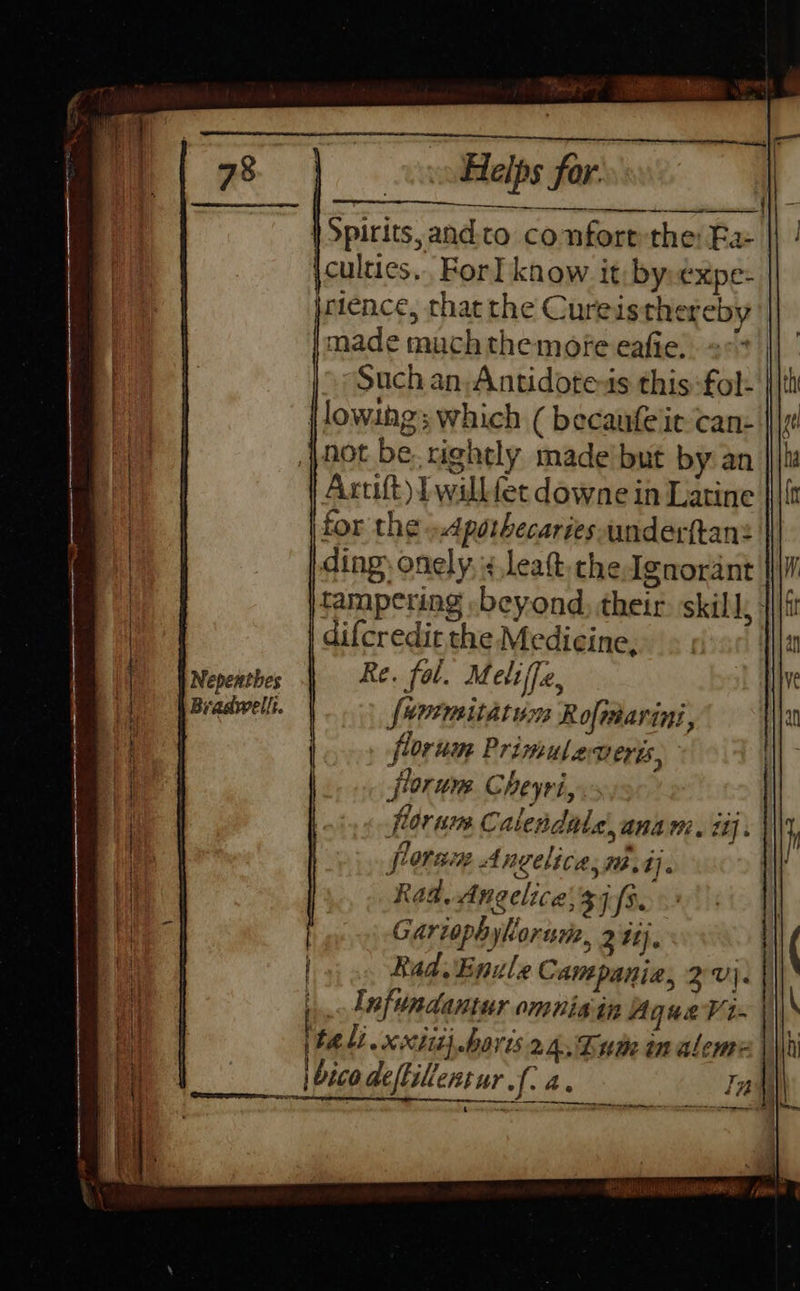 78 Helps for
Spirits, and to comfort the Fa-
culties. For I know it by expe-
rience, that the Cure is thereby
made much the more easie.
Such an Antidote is this fol-
lowing; which (becauſe it can-
not be rightly made but by an
Artiſt) I will ſet downe in Latine
for the Apothecaries underſtan-
ding onely; leaſt the Ignorant
tampering beyond their skill,
diſcredit the Medicine,
Nepenthes
Bradwelli.
Re. fol. Meliſſæ,
ſummitatum Roſmarini,
florum Primulæveris,
florum Cheyri,
florum Calendulæ, ana m. iij.
florum Angelicæ, m. ij.
Rad. Angelicæ, ʒjſs.
Gariophyllorum, ʒiij.
Rad. Enulæ Campaniæ, ʒvj.
Infundantur omnia in Aquæ Vi-
tali. xxiiij. horis 24. Tum in alem-
bico deſtillentur. ſ. a.
In